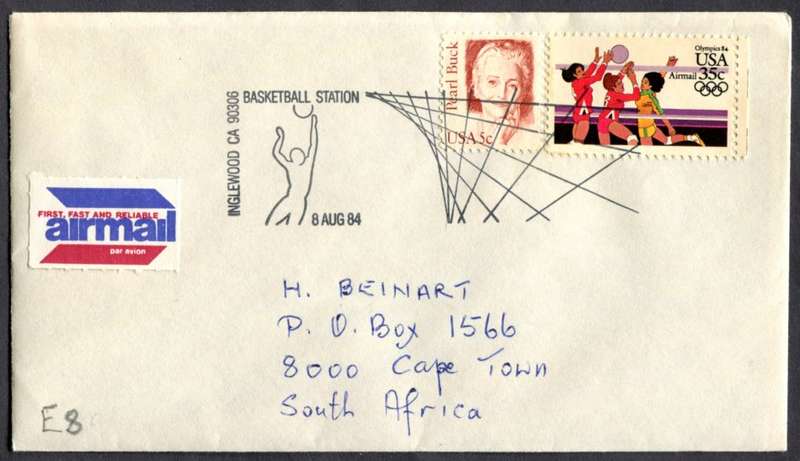 Pearl Buck
USA 5c
Olympics 84
USA
Airmail 35c
INGLEWOOD CA 90306
BASKETBALL STATION
8 AUG 84
FIRST, FAST AND RELIABLE
airmail
par avion
H. BEINART
P. O. Box 1566
8000 Cape Town
South Africa
E8